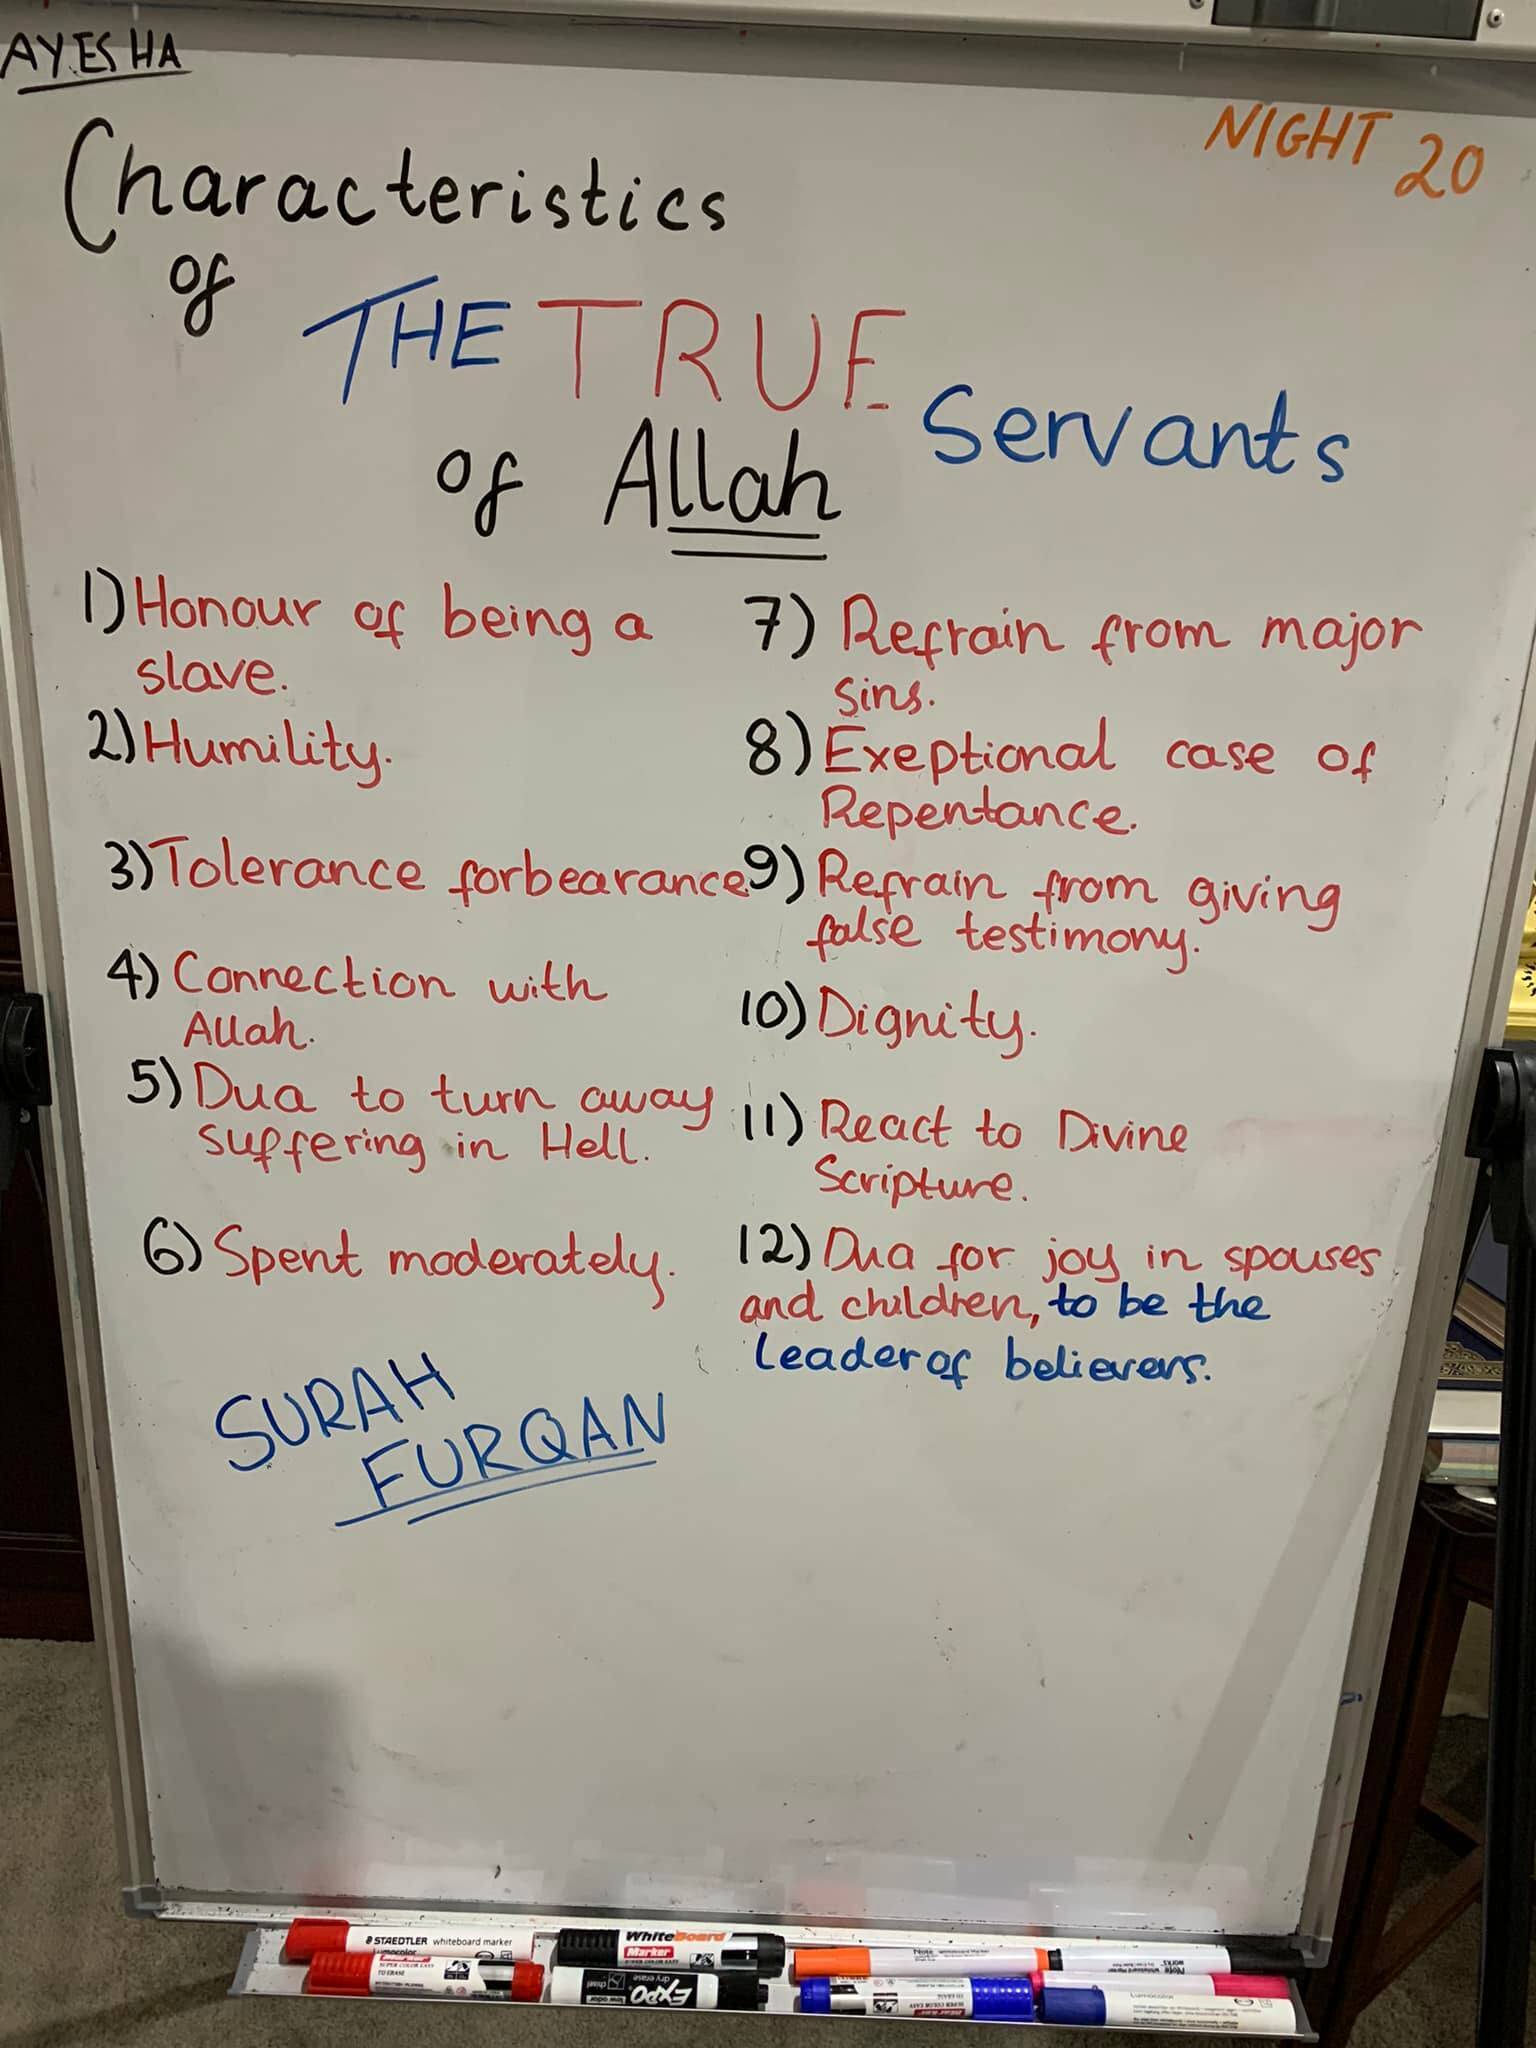 AYESHA
NIGHT 20
Characteristics
of
THE TRUE
Servants
of Allah
1) Honour of being a
slave.
2) Humility.
3) Tolerance forbearance
4) Connection with
Allah.
5) Dua to turn away
suffering in Hell.
6) Spent moderately.
7) Refrain from major
sins.
8) Exeptional case of
Repentance.
9) Refrain from giving
false testimony.
10) Dignity.
11) React to Divine
Scripture.
12) Dua for joy in spouses
and children, to be the
leader of believers.
SURAH
FURQAN
STAEDTLER whiteboard marker
Lumocolor
SUPER COLOR EASY
TO ERASE
WhiteBoard
Marker
EXPO
dry erase
chisel
low odor
Note
works
Lumocolor